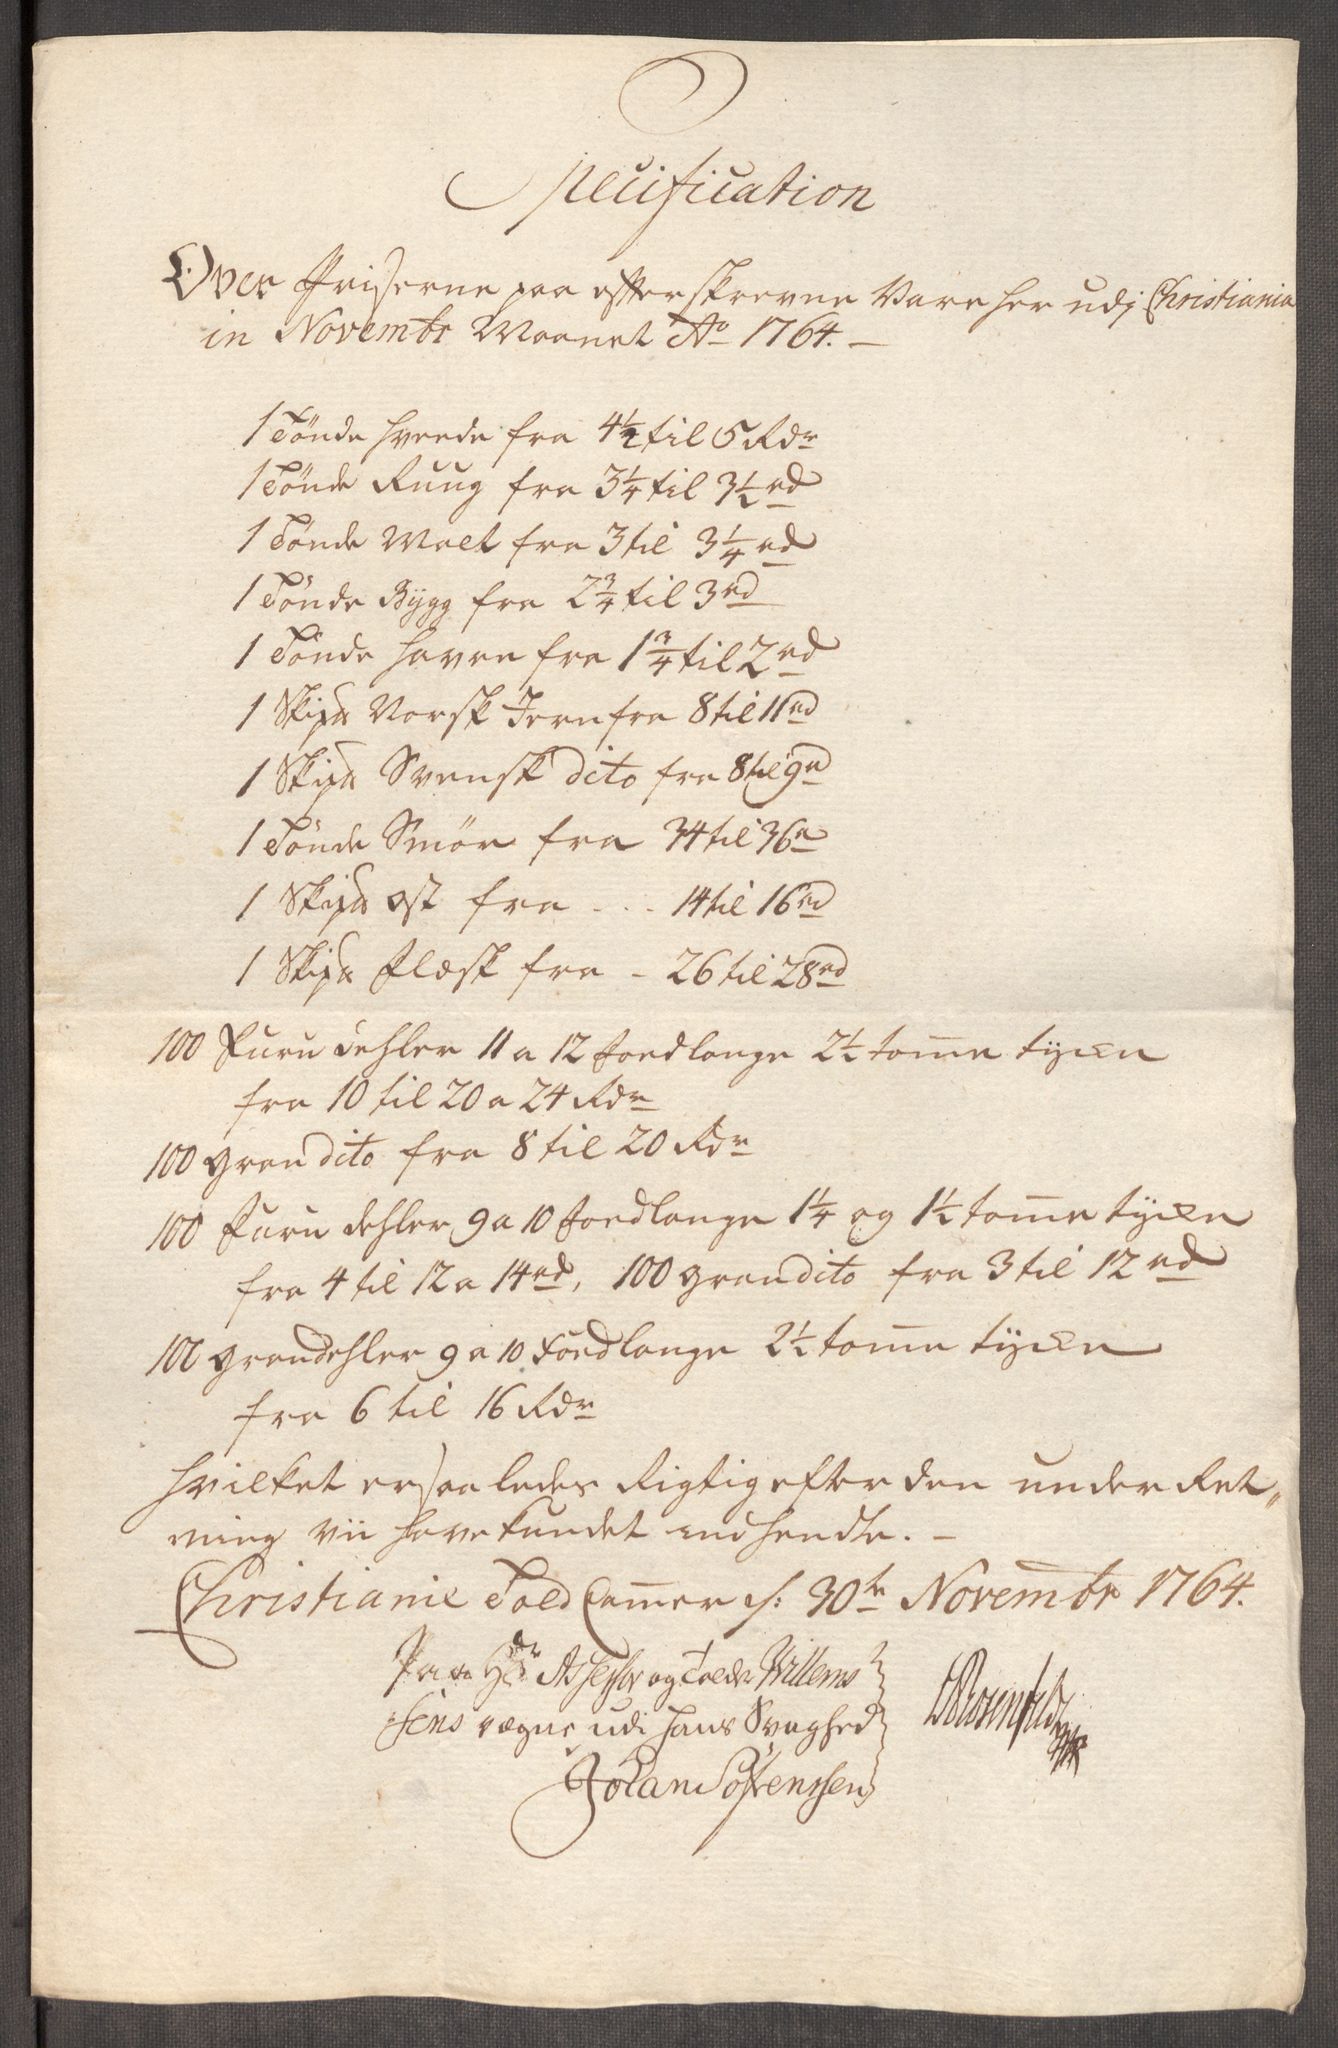 Specification
Over Priserne paa efterskrevne Vare her udj Christiania
in Novembr Maanet Ao 1764. —
1 Tönde hveede fra 4½ til 5 Rdr
1 Tönde Ruug fra 3¼ til 3½ rd
1 Tönde Malt fra 3 til 3¼ rd
1 Tönde Bÿgg fra 2¾ til 3 rd
1 Tönde Havre fra 1¾ til 2 rd
1 Skipd Norsk Jern fra 8 til 11 rd
1 Skipd Svensk dito fra 8 til 9 rd
1 Tönde Smör fra 34 til 36 r
1 Skipd Ost fra - . . 14 til 16 rd
1 Skipd Flæsk fra - 26 til 28 rd
100 Furu Dehler 11 a 12 foed lange 2½ tomme tÿcke
fra 10 til 20 a 24 Rdr
100 gran dito fra 8 til 20 Rdr
100 Furu dehler 9 a 10 foed lange 1¼ og 1½ tomme tÿcke
fra 4 til 12 a 14 rd, 100 gran dito fra 3 til 12 rd
100 grandehler 9 a 10 Foed lange 2½ tomme tÿcke
fra 6 til 16 Rdr
hvilket er saaledes Rigtig efter den under Ret„
ning vii have kundet indhendte. —
Christianie Told Cammer d: 30te Novembr 1764.
Paa Hr Assessor og Tolder Willem
sens vægne udi hans Svaghed
Johan Sörenssen
Rosenfeldt